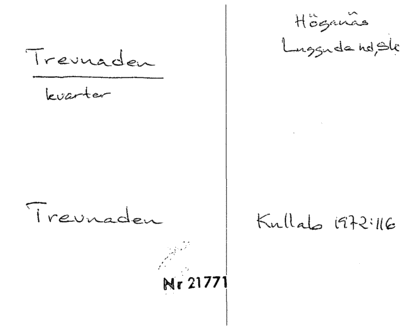 Höganäs
Luggude hd, Sk
Trevnaden
kvarter
Trevnaden
Kullab 1972:116
Nr 21771